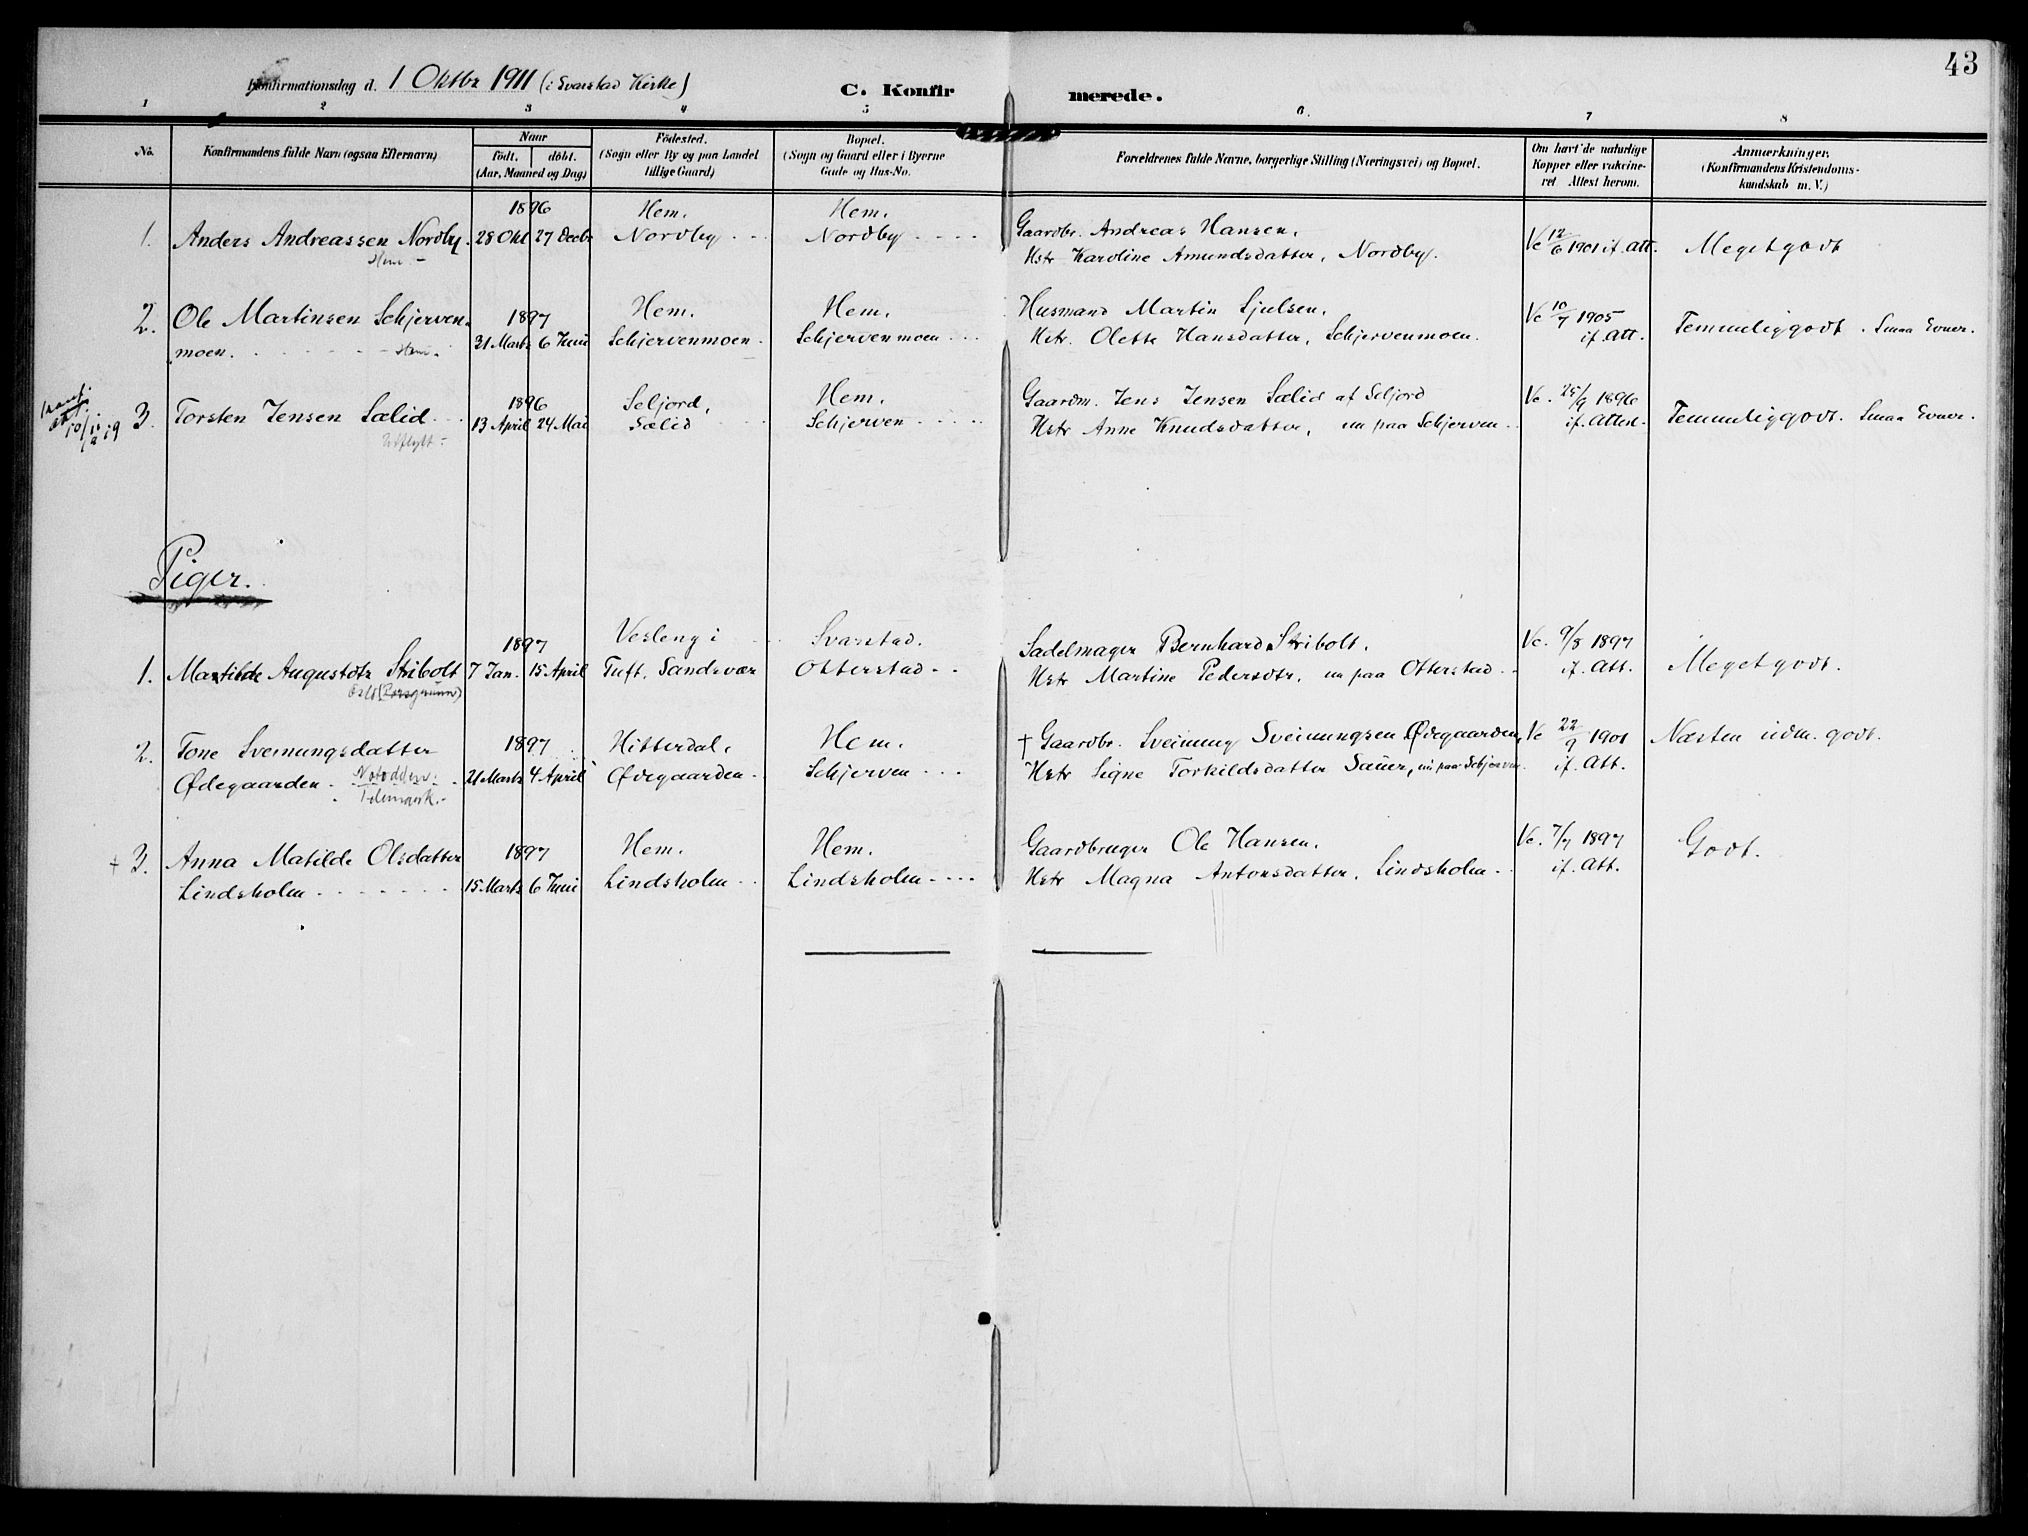 43
Konfirmationsdag d. 1 Oktbr 1911 (i Svarstad Kirke)
C. Konfirmerede.
1 2 3 4 5 6. 7 8
No.
Konfirmandens fulde Navn (ogsaa Efternavn)
Naar
födt. döbt.
(Aar, Maaned og Dag)
Födested.
(Sogn eller By og paa Landet
tillige Gaard)
Bopæl.
(Sogn og Gaard eller i Byerne
Gade og Hus-No.
Forældrenes fulde Navne, borgerlige Stilling (Næringsvei) og Bopæl.
Om havt de naturlige
Kopper eller vakcine-
ret Attest herom.
Anmærkninger,
(Konfirmandens Kristendoms-
kundskab m. V.)
1896 Hem. Hem. Gaardbr. Andreas Hansen.
1. Anders Andreassen Nordby. 28 Okt 27 Decbr Nordby Nordby Hstr Karoline Amundsdatter, Nordby. Vc 12/6 1901 if. Att. Meget godt
Hem.-
2. Ole Martinsen Schjerven- 1897 Hem. Hem. Husmand Martin Sjulsen. Vc 10/7 1905
moen. Hem. 31 Marts 6 Juni Schjervenmoen. Schjervenmoen Hstr. Olette Hansdatter, Schjervenmoen. if. Att. Temmelig godt. Smaa Evner.
att. 10/12 19
3. Torsten Jensen Sælid 1896 Seljord, Hem. Gaardm. Jens Jensen Sælid af Seljord Vc. 25/9 1896
Utflytt- 13 April 24 Mai Sælid Schjerven Hstr Anne Knudsdatter, nu paa Schjerven. if. Attest. Temmelig godt. Smaa Evner.
Piger.
1897 Vesleng i Svarstad. Sadelmager Bernhard Stribolt. Vc. 9/8 1897
1. Matilde Augustdtr Stribolt 7 Jan. 15 April Tuft, Sandsvær Otterstad Hstr Martine Pedersdtr, nu paa Otterstad if. Att. Meget godt.
(Porsgrunn)
2. Tone Sveinungsdatter 1897 Hitterdal. Hem. † Gaardbr. Sveinung Sveinungsen Ødegaarden, Vc 22/9 1901 Næsten udm. godt.
Ødegaarden. Notodden. 21 Marts 4 April Ødegaarden Schjerven Hstr Signe Torkildsdatter Sauer, nu paa Schjerven. if. Att.
Telemark.-
† 3. Anna Matilde Olsdatter 1897 Hem. Hem. Gaardbruger Ole Hansen. Vc. 7/7 1897 Godt.
Lindsholm 15 Marts 6 Juni Lindsholm Lindsholm Hstr Magna Antonsdatter, Lindsholm if. Att.